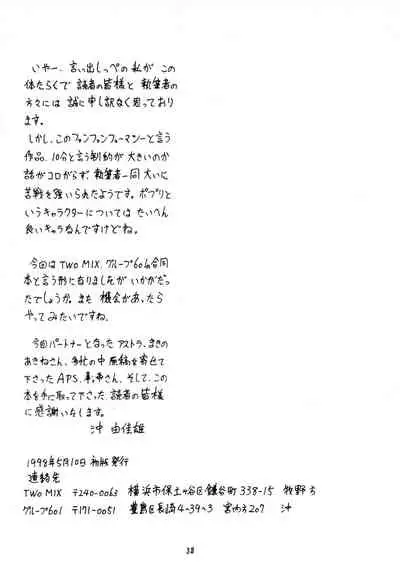 いやー、言い出しっぺの私が この
体たらくで 読者の皆様と 執筆者の
方々には 誠に申し訳なく思っており
ます。
しかし、このファンファンファーマシーと言う
作品、10分と言う制約が 大きいのか
話がコロがらず、執筆者一同大いに
苦戦を強いられたようです。ポプリと
いうキャラクターについては たいへん
良いキャラなんですけどね。
今回は TWO MIX、グループ601の合同
本と言う形になりましたが いかがだっ
たでしょうか。また 機会があったら
やってみたいですね。
今回パートナーとなった アストラ、まきの
あきねさん、多忙の中 原稿を寄せて
下さった APS、さん、そして、この
本を手に取って下さった 読者の皆様
に感謝いたします。
沖 由佳雄
1998年5月10日 初版発行
連絡先
TWO MIX 〒240-0063 横浜市保土ヶ谷区鎌谷町338-15 牧野方
グループ601 〒171-0051 豊島区長崎4-39-3 宮わ方207 沖
38